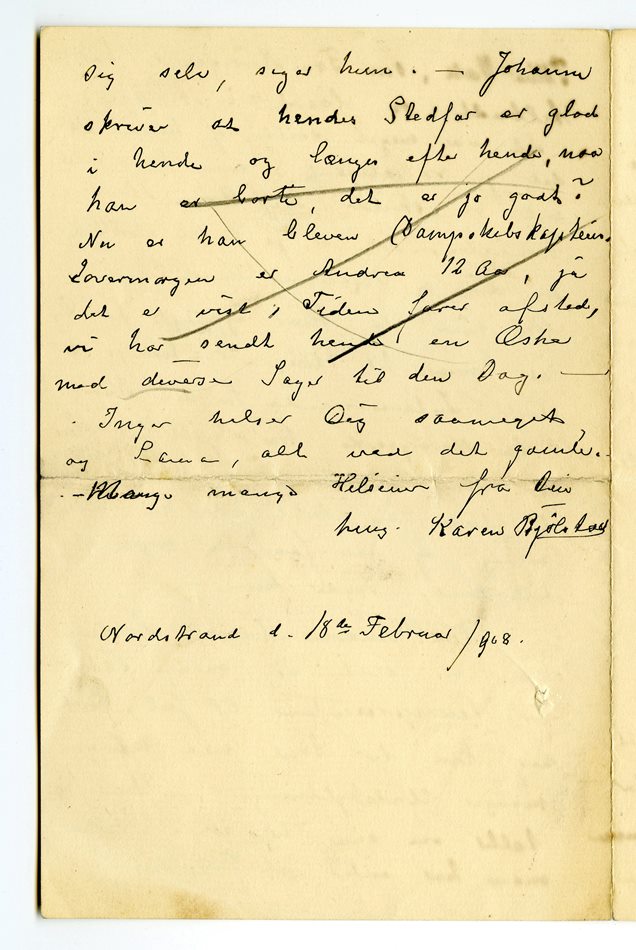 sig selv, siger hun. — Johanne
skriver at hendes Stedfar er glad
i hende og længes efter hende, naar
han er borte, det er jo godt?
Nu er han bleven Dampskibskaptein.
Iovermorgen er Andrea 12 Aar, ja
det er vist, Tiden farer afsted,
vi har sendt hende en Æske
med diverse Sager til den Dag. —
Inger hilser Dig saameget
og Laura, alt ved det gamle.
- Mange mange Hilsener fra Din
heng. Karen Bjølstad
Nordstrand d. 18de Februar /908.